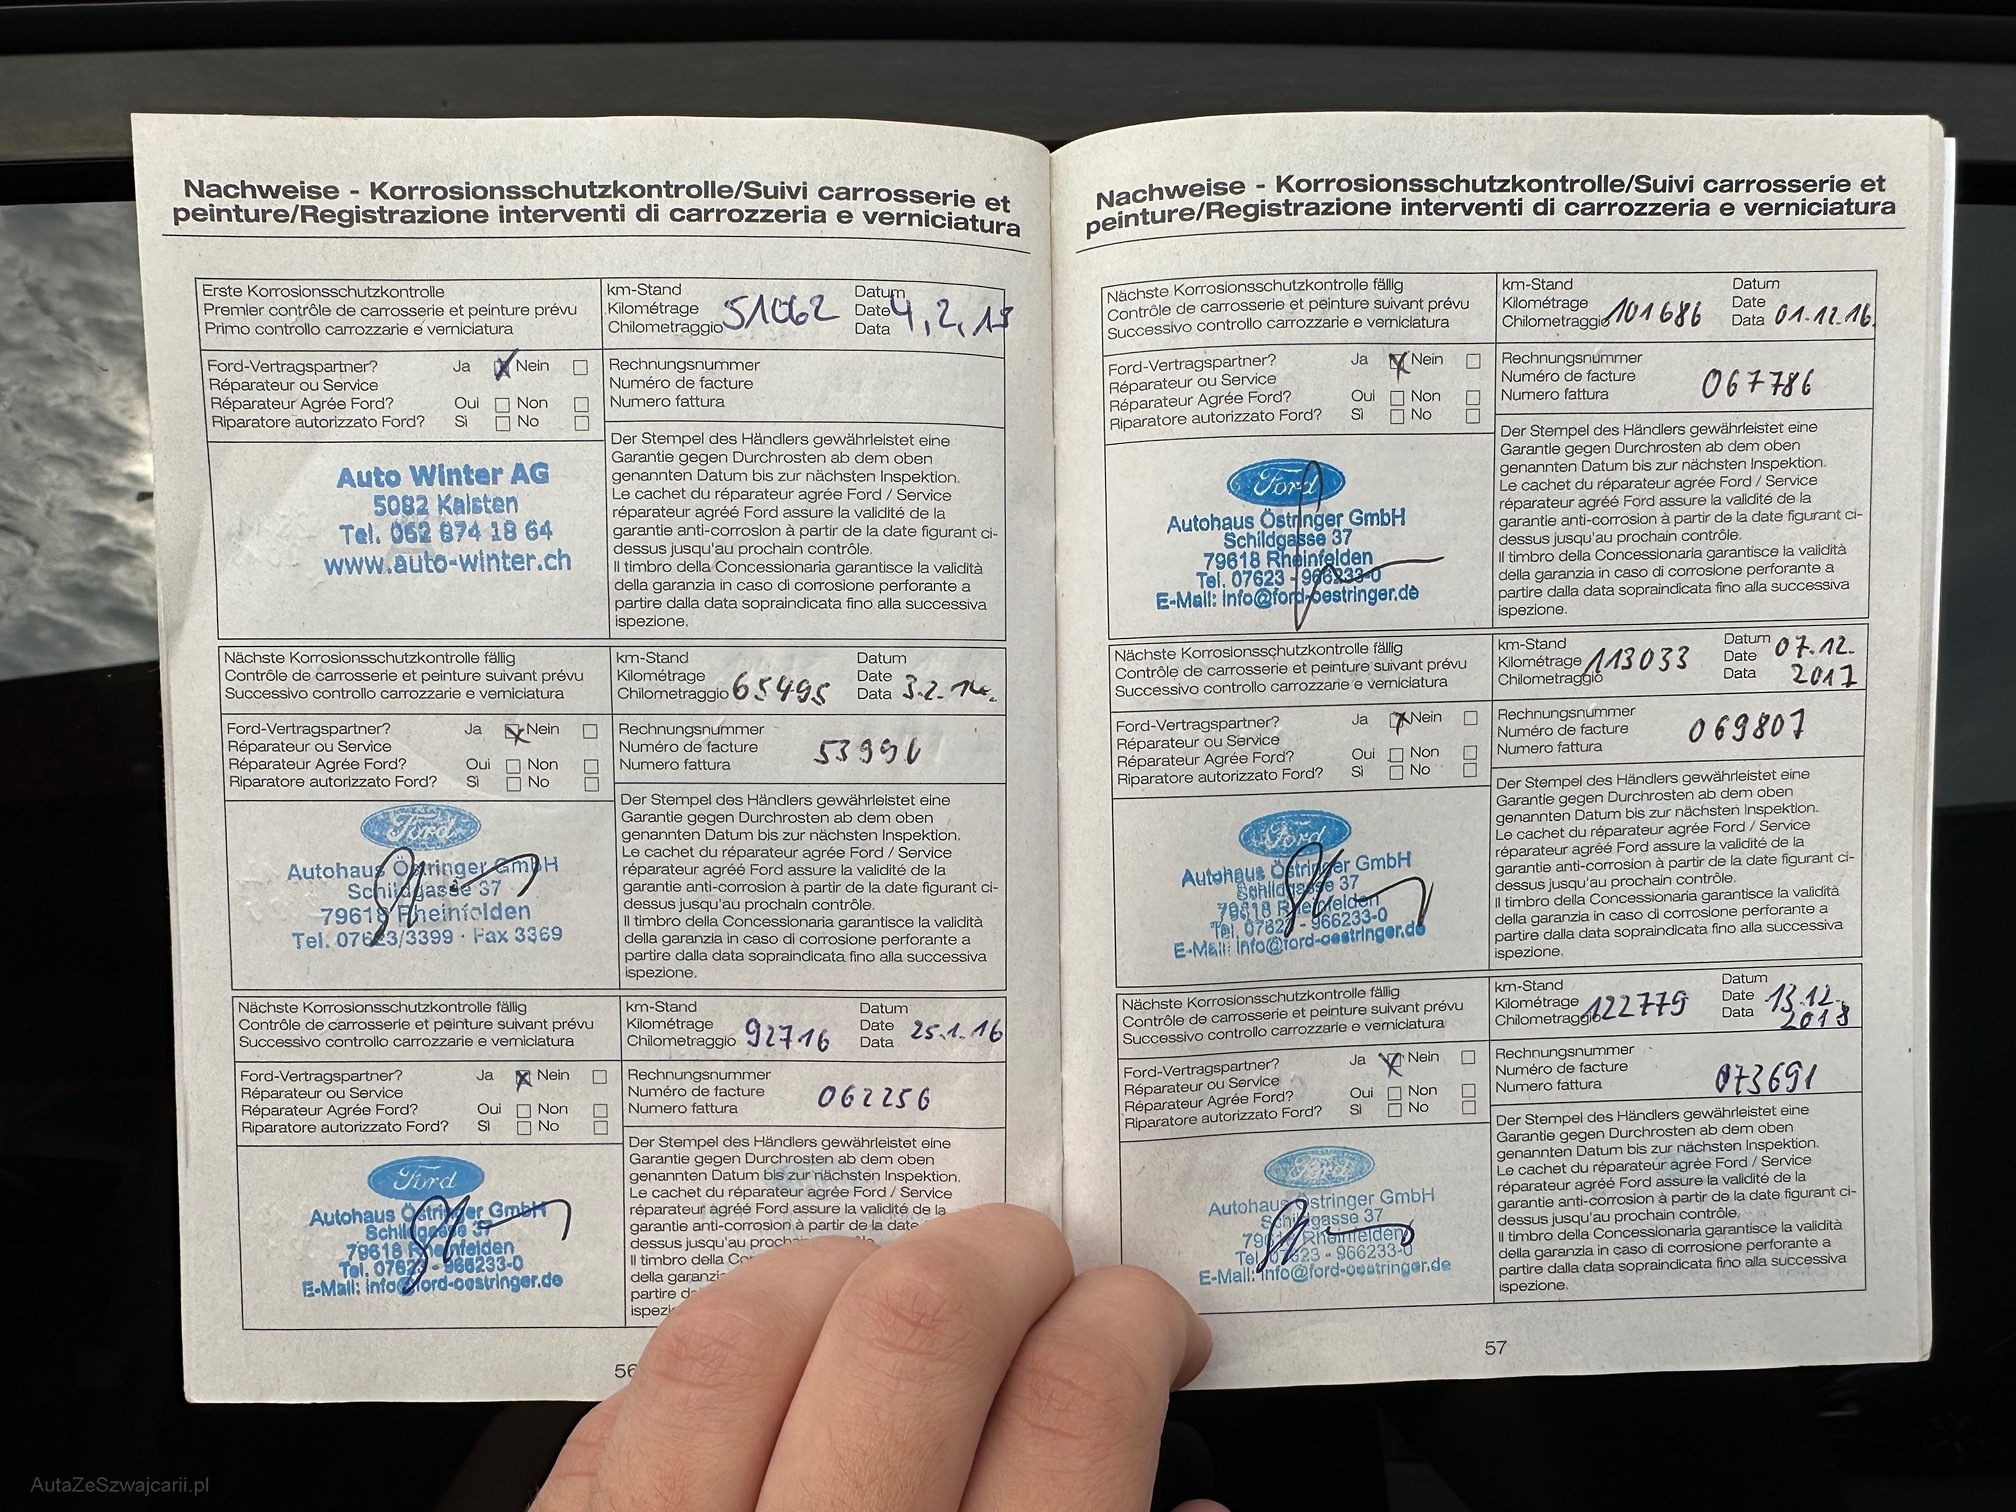 Nachweise - Korrosionsschutzkontrolle/Suivi carrosserie et
peinture/Registrazione interventi di carrozzeria e verniciatura
Erste Korrosionsschutzkontrolle
Premier contrôle de carrosserie et peinture prévu
Primo controllo carrozzarie e verniciatura
km-Stand
Kilométrage
Chilometraggio 51062
Datum
Date
Data 4.2.13
Ford-Vertragspartner? Ja X Nein
Réparateur ou Service
Réparateur Agrée Ford? Oui Non
Riparatore autorizzato Ford? Sì No
Rechnungsnummer
Numéro de facture
Numero fattura
Auto Winter AG
5082 Kaisten
Tel. 062 874 18 64
www.auto-winter.ch
Der Stempel des Händlers gewährleistet eine
Garantie gegen Durchrosten ab dem oben
genannten Datum bis zur nächsten Inspektion.
Le cachet du réparateur agrée Ford / Service
réparateur agréé Ford assure la validité de la
garantie anti-corrosion à partir de la date figurant ci-
dessus jusqu'au prochain contrôle.
Il timbro della Concessionaria garantisce la validità
della garanzia in caso di corrosione perforante a
partire dalla data sopraindicata fino alla successiva
ispezione.
Nächste Korrosionsschutzkontrolle fällig
Contrôle de carrosserie et peinture suivant prévu
Successivo controllo carrozzarie e verniciatura
km-Stand
Kilométrage
Chilometraggio 65495
Datum
Date
Data 3.2.14.
Ford-Vertragspartner? Ja X Nein
Réparateur ou Service
Réparateur Agrée Ford? Oui Non
Riparatore autorizzato Ford? Sì No
Rechnungsnummer
Numéro de facture
Numero fattura
Ford
Autohaus Östringer GmbH
Schildgasse 37
79618 Rheinfelden
Tel. 07623/3399 · Fax 3369
Der Stempel des Händlers gewährleistet eine
Garantie gegen Durchrosten ab dem oben
genannten Datum bis zur nächsten Inspektion.
Le cachet du réparateur agrée Ford / Service
réparateur agréé Ford assure la validité de la
garantie anti-corrosion à partir de la date figurant ci-
dessus jusqu'au prochain contrôle.
Il timbro della Concessionaria garantisce la validità
della garanzia in caso di corrosione perforante a
partire dalla data sopraindicata fino alla successiva
ispezione.
Nächste Korrosionsschutzkontrolle fällig
Contrôle de carrosserie et peinture suivant prévu
Successivo controllo carrozzarie e verniciatura
km-Stand
Kilométrage
Chilometraggio 92716
Datum
Date
Data 25.1.16
Ford-Vertragspartner? Ja X Nein
Réparateur ou Service
Réparateur Agrée Ford? Oui Non
Riparatore autorizzato Ford? Sì No
Rechnungsnummer
Numéro de facture
Numero fattura 062256
Ford
Autohaus Östringer GmbH
Schildgasse 37
79618 Rheinfelden
Tel. 07623 - 966233-0
E-Mail: info@ford-oestringer.de
Der Stempel des Händlers gewährleistet eine
Garantie gegen Durchrosten ab dem oben
genannten Datum bis zur nächsten Inspektion.
Le cachet du réparateur agrée Ford / Service
réparateur agréé Ford assure la validité de la
garantie anti-corrosion à partir de la date
dessus jusqu'au
Il timbro della
della
partire
56
Nachweise - Korrosionsschutzkontrolle/Suivi carrosserie et
peinture/Registrazione interventi di carrozzeria e verniciatura
Nächste Korrosionsschutzkontrolle fällig
Contrôle de carrosserie et peinture suivant prévu
Successivo controllo carrozzarie e verniciatura
km-Stand
Kilométrage
Chilometraggio 101686
Datum
Date
Data 01.12.16.
Ford-Vertragspartner? Ja X Nein
Réparateur ou Service
Réparateur Agrée Ford? Oui Non
Riparatore autorizzato Ford? Sì No
Rechnungsnummer
Numéro de facture
Numero fattura 067786
Ford
Autohaus Östringer GmbH
Schildgasse 37
79618 Rheinfelden
Tel. 07623 - 966233-0
E-Mail: info@ford-oestringer.de
Der Stempel des Händlers gewährleistet eine
Garantie gegen Durchrosten ab dem oben
genannten Datum bis zur nächsten Inspektion.
Le cachet du réparateur agrée Ford / Service
réparateur agréé Ford assure la validité de la
garantie anti-corrosion à partir de la date figurant ci-
dessus jusqu'au prochain contrôle.
Il timbro della Concessionaria garantisce la validità
della garanzia in caso di corrosione perforante a
partire dalla data sopraindicata fino alla successiva
ispezione.
Nächste Korrosionsschutzkontrolle fällig
Contrôle de carrosserie et peinture suivant prévu
Successivo controllo carrozzarie e verniciatura
km-Stand
Kilométrage 113033
Chilometraggio
Datum 07.12.
Date 2017
Data
Ford-Vertragspartner? Ja X Nein
Réparateur ou Service
Réparateur Agrée Ford? Oui Non
Riparatore autorizzato Ford? Sì No
Rechnungsnummer
Numéro de facture 069807
Numero fattura
Ford
Autohaus Östringer GmbH
Schildgasse 37
79618 Rheinfelden
Tel. 07623 - 966233-0
E-Mail: info@ford-oestringer.de
Der Stempel des Händlers gewährleistet eine
Garantie gegen Durchrosten ab dem oben
genannten Datum bis zur nächsten Inspektion.
Le cachet du réparateur agrée Ford / Service
réparateur agréé Ford assure la validité de la
garantie anti-corrosion à partir de la date figurant ci-
dessus jusqu'au prochain contrôle.
Il timbro della Concessionaria garantisce la validità
della garanzia in caso di corrosione perforante a
partire dalla data sopraindicata fino alla successiva
ispezione.
Nächste Korrosionsschutzkontrolle fällig
Contrôle de carrosserie et peinture suivant prévu
Successivo controllo carrozzarie e verniciatura
km-Stand
Kilométrage
Chilometraggio 122779
Datum
Date 13.12.
Data 2018
Ford-Vertragspartner? Ja X Nein
Réparateur ou Service
Réparateur Agrée Ford? Oui Non
Riparatore autorizzato Ford? Sì No
Rechnungsnummer
Numéro de facture
Numero fattura 073691
Ford
Autohaus Östringer GmbH
Schildgasse 37
79618 Rheinfelden
Tel. 07623 - 966233-0
E-Mail: info@ford-oestringer.de
Der Stempel des Händlers gewährleistet eine
Garantie gegen Durchrosten ab dem oben
genannten Datum bis zur nächsten Inspektion.
Le cachet du réparateur agrée Ford / Service
réparateur agréé Ford assure la validité de la
garantie anti-corrosion à partir de la date figurant ci-
dessus jusqu'au prochain contrôle.
Il timbro della Concessionaria garantisce la validità
della garanzia in caso di corrosione perforante a
partire dalla data sopraindicata fino alla successiva
ispezione.
57
AutaZeSzwajcarii.pl